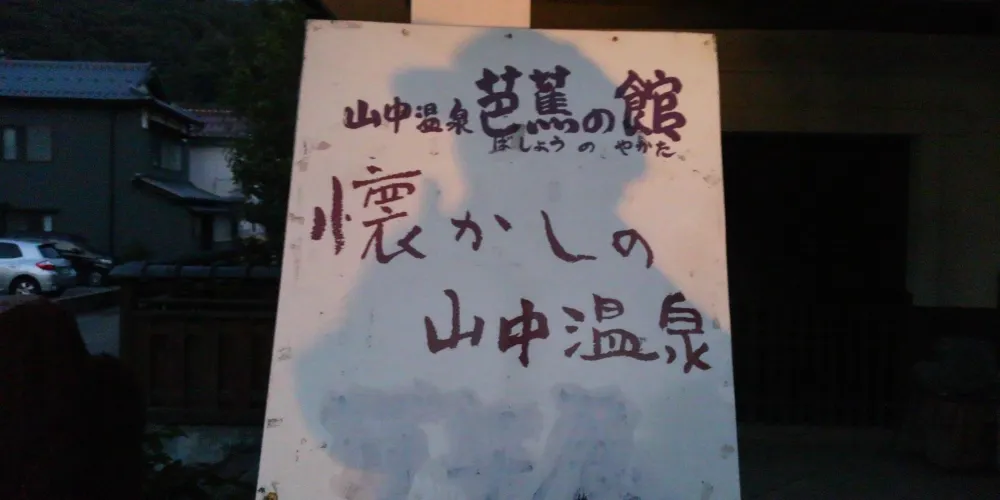 山中温泉芭蕉の館
ばしょうのやかた
懐かしの
山中温泉